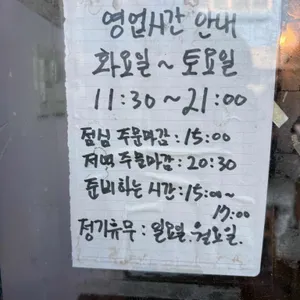 영업시간 안내
화요일 ~ 토요일
11:30 ~ 21:00
점심 주문마감 : 15:00
저녁 주문마감 : 20:30
준비하는 시간 : 15:00~
17:00
정기휴무 : 일요일. 월요일.